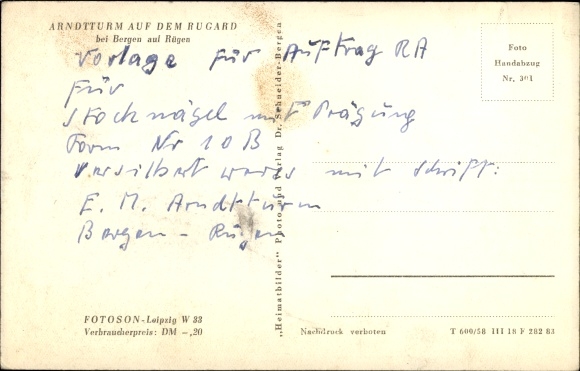 ARNDTTURM AUF DEM RUGARD
bei Bergen auf Rügen
Vorlage für Auftrag RA
für
Stocknägel mit Prägung
Form Nr 10 B
versilbert mit Schrift:
E. M. Arndtturm
Bergen - Rügen
FOTOSON-Leipzig W 33
Verbraucherpreis: DM -,20
„Heimatbilder" Photo und Verlag Dr. Schneider-Bergen
Foto
Handabzug
Nr. 301
Nachdruck verboten
T 600/58 III 18 F 282 83